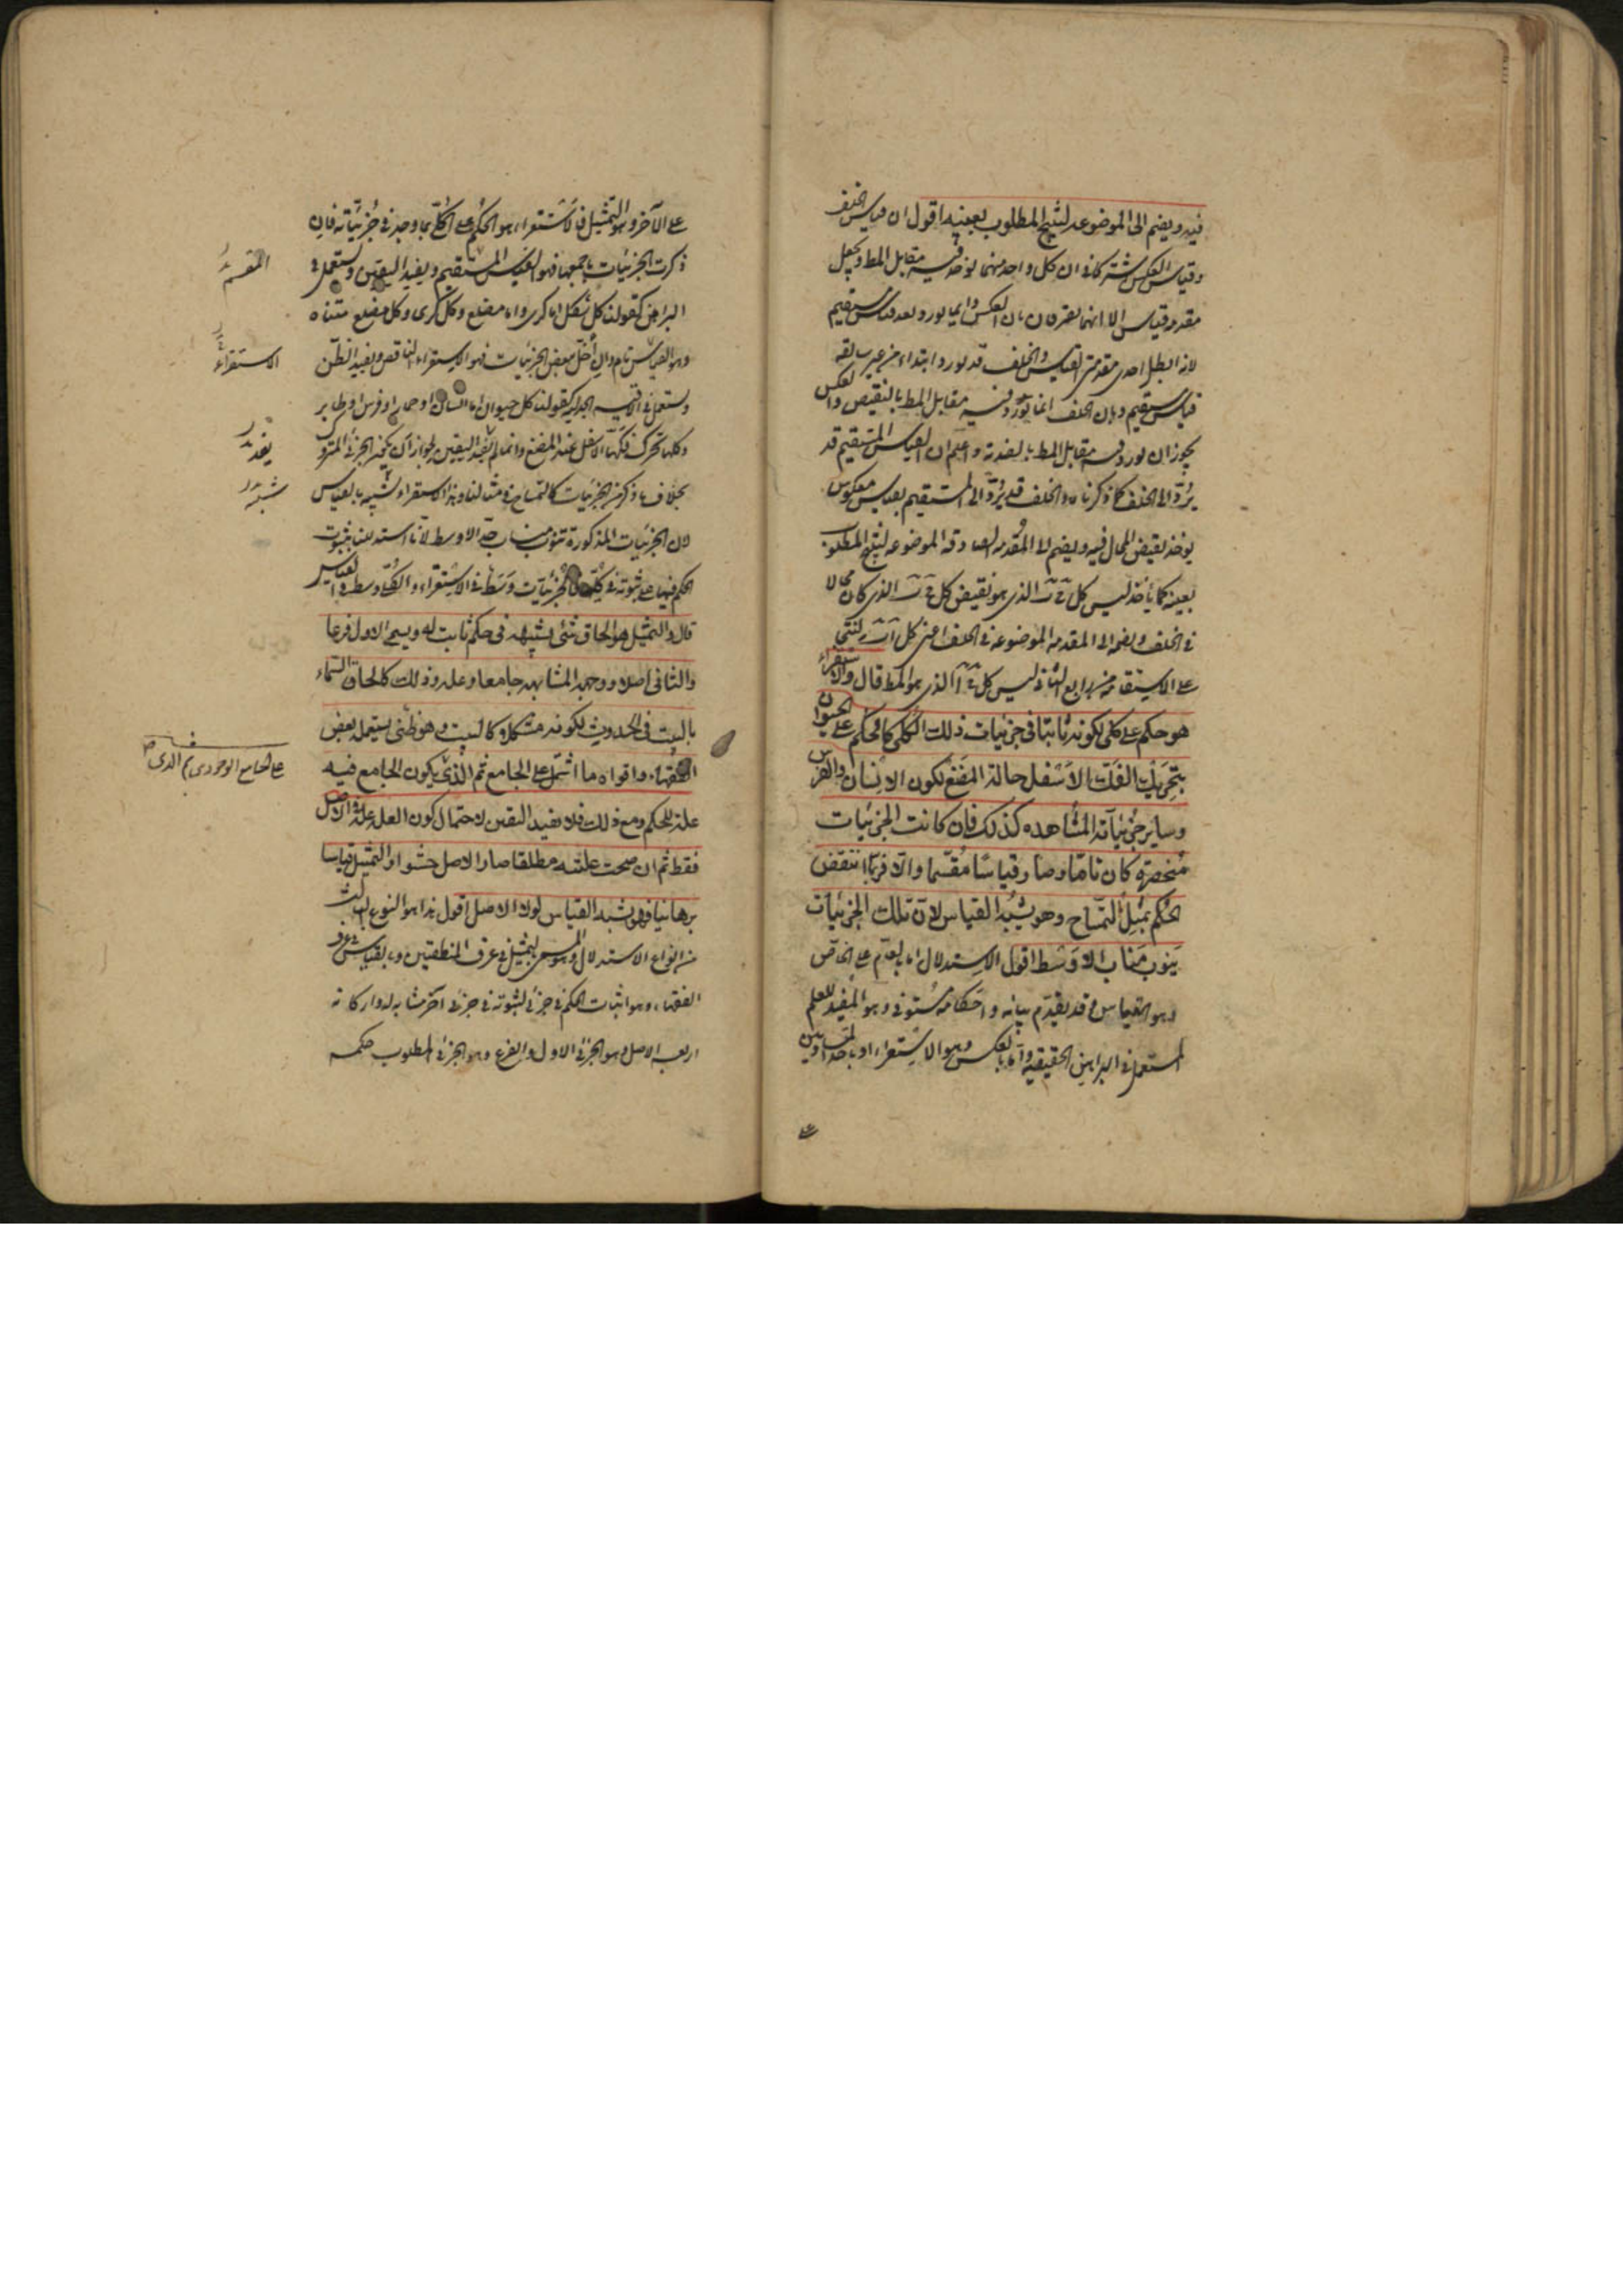 فيه ويضم الى الموضوعه لينتج المطلوب بعينه اقول ان قياس الخلف
وقياس العكس يشتركان في ان كل واحد منهما يوخذ فيه مقابل المط ويجعل
مقدمة قياس الا انهما يفترقان بان العكس دايما يورد بعد قياس مستقيم
لانه ابطل احدى مقدمتي القياس والخلف قد يورد ابتداء من غير سابقه
قياس مستقيم وبان الخلف انما يورد فيه مقابل المط بالنقيض والعكس
يجوز ان يورد فيه مقابل المط بالضد ته واعلم ان القياس المستقيم قد
يردّ الى الخلف كما ذكرناه والخلف قد يردّ الى المستقيم بقياس معكوس
يوخذ نقيض المحال فيه ويضم الى المقدمه الصادقه الموضوعه لينتج المطلوب
بعينه كما ياخذ ليس كل ج ب الذى هو نقيض كل ج ب الذى كان محالا
في الخلف ويضمه الى المقدمه الموضوعه في الخلف اعنى كل آ ب لينتج
على الاستقامه من رابع الثانى ليس كل ج آ الذى هو المط قال والاستقراء
هو حكم على كلى لكونه ثابتا في جزئيات ذلك الكلى كالحكم على الحيوان
بتحريك الفك الاسفل حالة المضغ لكون الانسان والفرس
وساير جزئياته المشاهده كذلك فان كانت الجزئيات
منحصرة كان تاما وصار قياسا مقسّما والا فربما انتقض
الحكم بمثل التمساح وهو يشبه القياس لان تلك الجزئيات
ينوب مناب الاوسط اقول الاستدلال اما بالعام على الخاص
وهو القياس وقد تقدم بيانه واحكامه مستوفى وهو المفيد للعلم
المستعمل في البراهين الحقيقيه واما بالعكس وهو الاستقراء او باحد المتساويين
على الآخر وهو التمثيل فالاستقراء هو الحكم على الكلى بما وجد في جزئياته فان
ذكرت الجزئيات باجمعها فهو القياس المستقيم ويفيد اليقين ويستعمل في
البراهين كقولنا كل شكل اما كرى واما مضلع وكل كرى وكل مضلع متناه
وهو القياس تام وان اخلّ ببعض الجزئيات فهو الاستقراء الناقص ويفيد الظن
ويستعمل في الاقيسه الجدليه كقولنا كل حيوان اما انسان او حمار او فرس او طاير
وكلها تحرك فكّها الاسفل عند المضغ وانما لم يفد اليقين لجواز ان يكون الجزئى المتروك
بخلاف ما ذكر من الجزئيات كالتمساح في مثالنا وهذا الاستقراء شبيه بالقياس
لان الجزئيات المذكورة تنوب مناب حد الاوسط لانا استدللنا بثبوت
الحكم فيها على ثبوته في كليّها فالجزئيات وسط في الاستقراء والكلى وسط في القياس
قال والتمثيل هو الحاق شئ بشبيهه في حكم ثابت له ويسمى الاول فرعا
والثانى اصلا ووجه المشابهه جامعا وعله وذلك كالحاق السماء
بالبيت في الحدوث لكونه متشكلا كالبيت وهو ظنى يستعمله بعض
الفقهاء واقواه ما اشتمل على الجامع ثم الذى يكون الجامع فيه
علة للحكم ومع ذلك فلا يفيد اليقين لاحتمال كون العله علة في الاصل
فقط ثم ان صحت علته مطلقا صار الاصل حشوا والتمثيل قياسا
برهانيا فهو يشبه القياس لولا الاصل اقول هذا هو النوع الثالث
من انواع الاستدلال وهو المسمى بالتمثيل في عرف المنطقيين وبالقياس في عرف
الفقهاء وهو اثبات الحكم في جزئى لثبوته في جزئى آخر مشابه له واركانه
اربعه الاصل وهو الجزئى الاول والفرع وهو الجزئى المطلوب حكمه
الاستقراء
على الجامع الوجودى ثم الذى